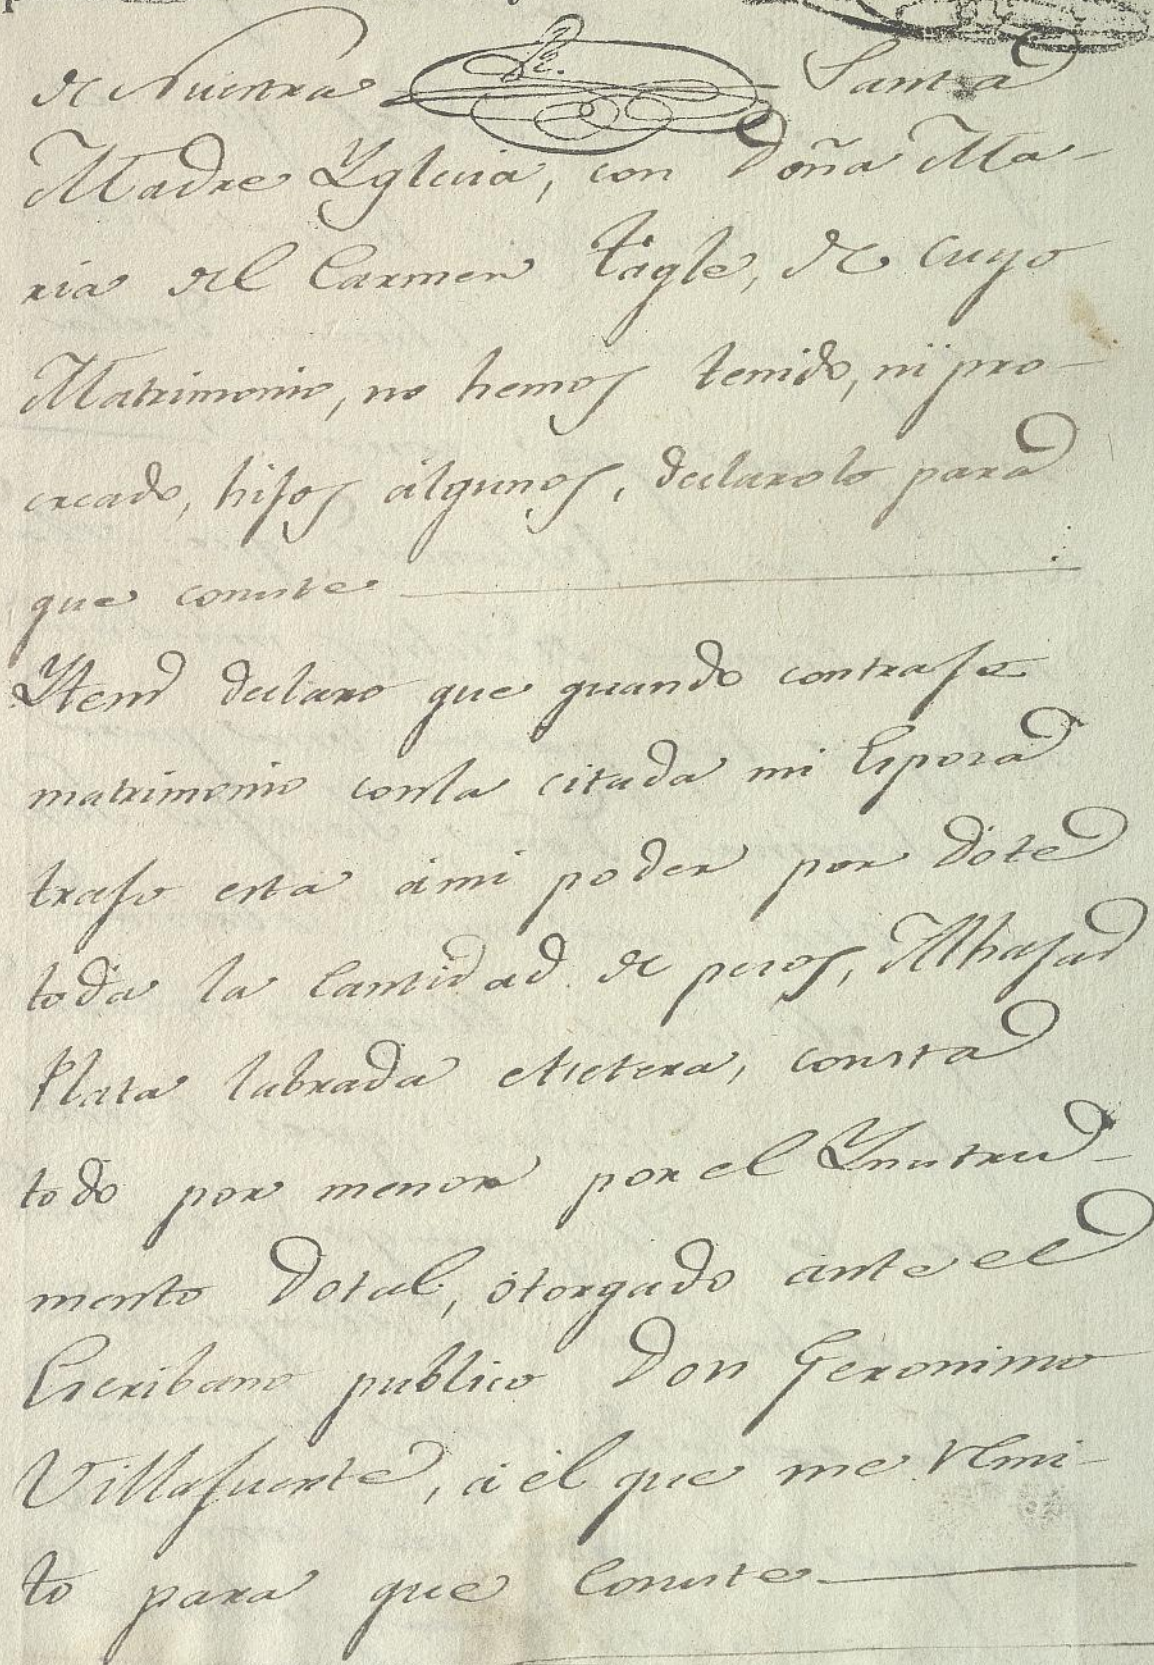 de Nuestra Santa
Madre Yglesia, con Doña Ma-
ria del Carmen Tagle, de cuyo
Matrimonio, no hemos tenido, ni pro-
creado, hijos algunos, declarolo para
que conste
Ytem declaro que quando contraje
matrimonio con la citada mi Esposa
trajo esta á mi poder por Dote
toda la Cantidad de pesos, Alhajas
Plata labrada etcetera, consta
todo por menor por el Ynstru-
mento Dotal, otorgado ante el
Escribano publico Don Geronimo
Villafuerte, á él que me remi-
to para que Conste